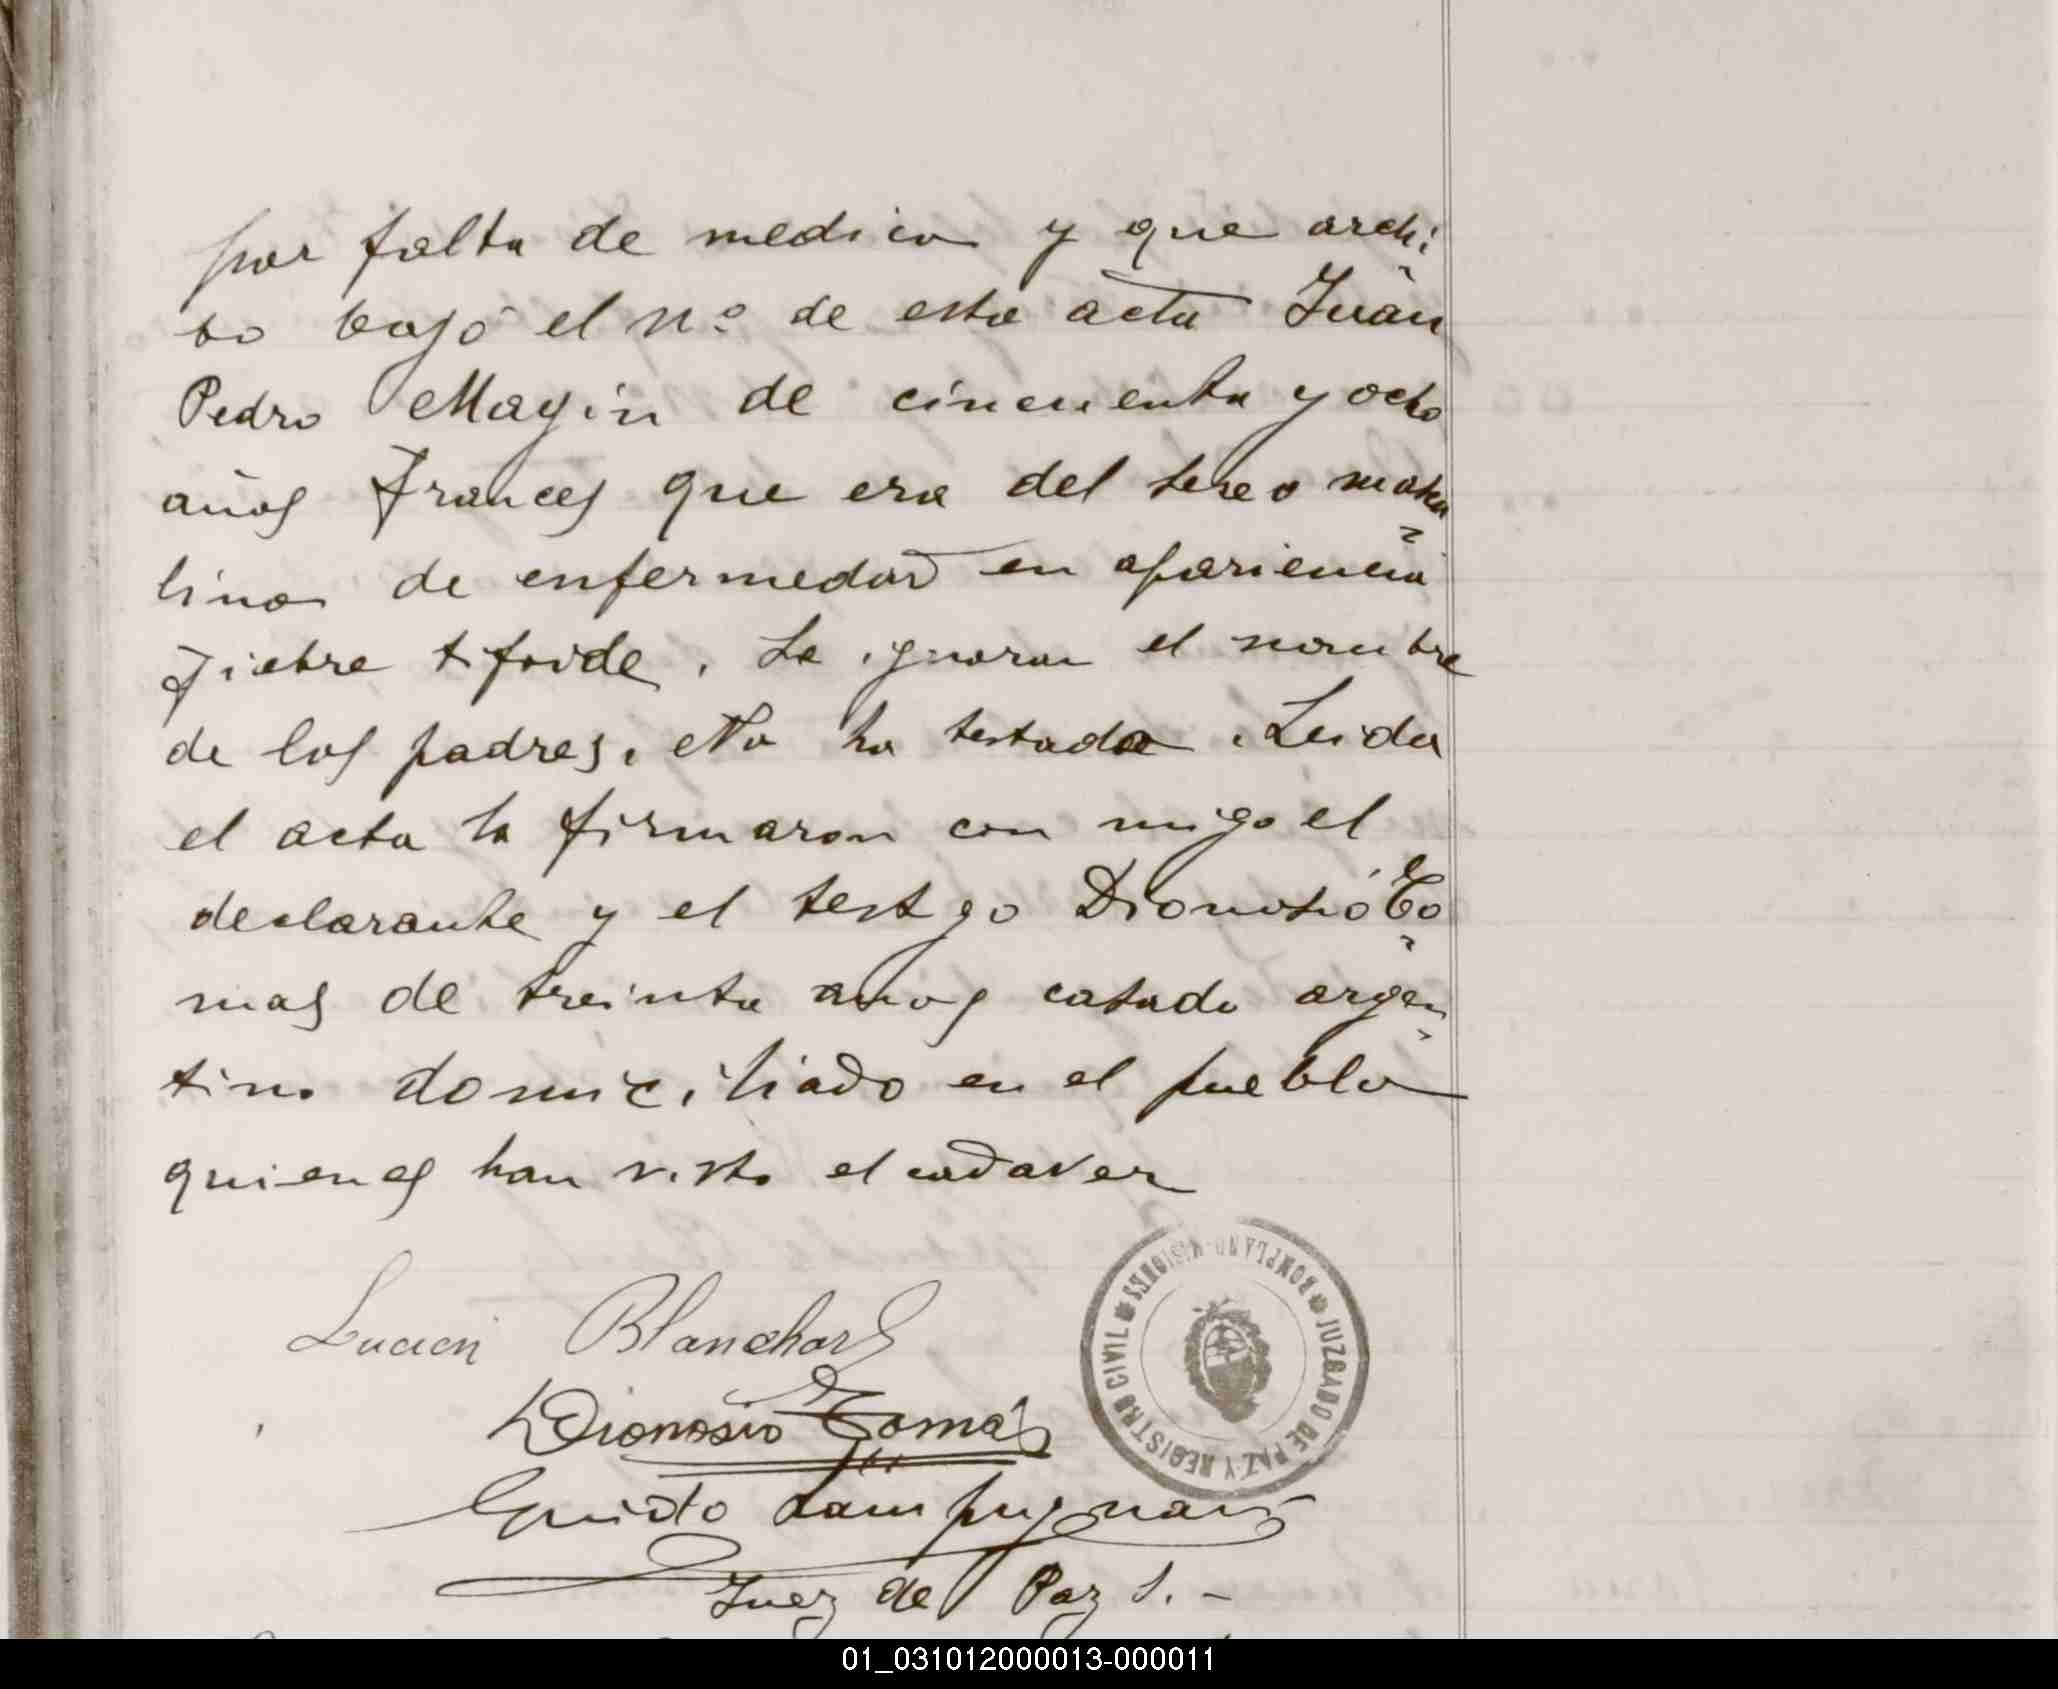 por falta de medico y que archi
vo bajo el nº de esta acta Juan
Pedro Magin de cincuenta y ocho
años Frances que era del sexo mascu
lino de enfermedad en apariencia
fiebre tifoide. Se ignoran el nombre
de los padres. No ha testado. Leida
el acta la firmaron con migo el
declarante y el testgo Dionosio To
mas de treinta anos casado argen
tino domiciliado en el pueblo
quienes han visto el cadaver
Lucien Blanchard
Dionosio Tomás
Guido Lampugnani
Juez de Paz S. -
JUZGADO DE PAZ Y REGISTRO CIVIL * BONPLAND-MISIONES *
01_031012000013-000011